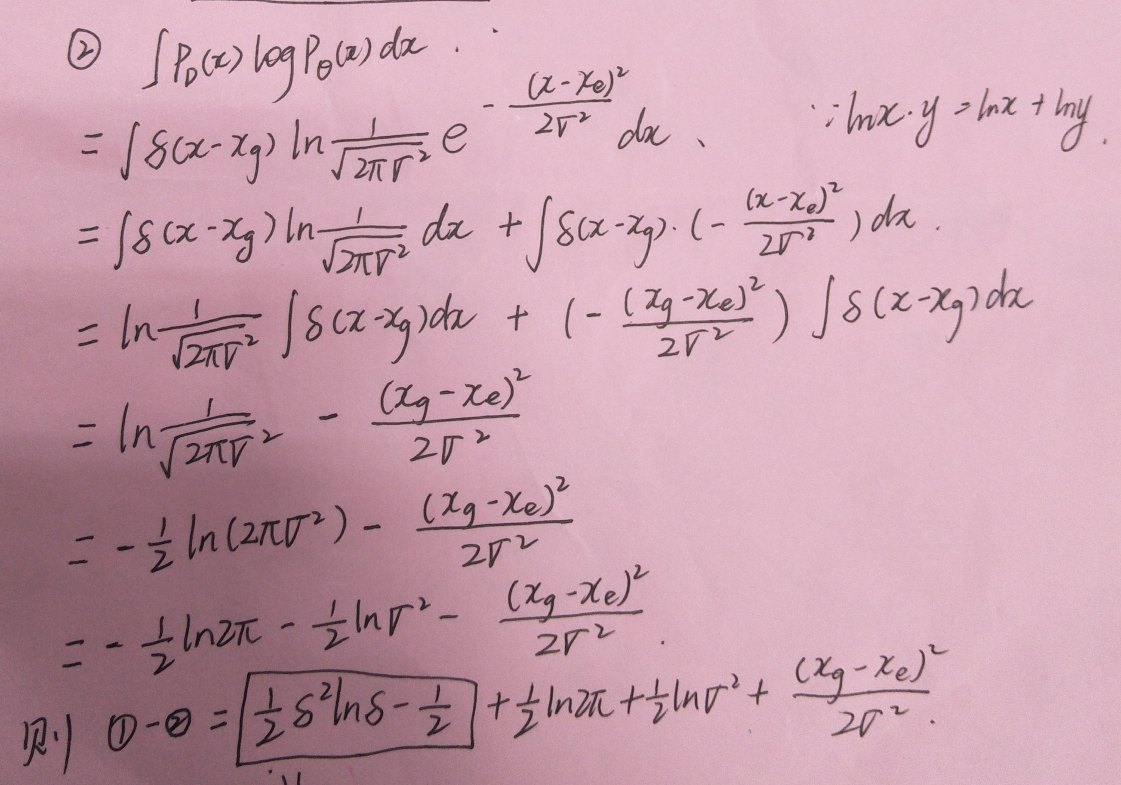 ② ∫P_D(x) log P_θ(x) dx .
= ∫δ(x-x_g) ln 1/√(2πσ²) e^(-(x-x_e)²/2σ²) dx 、 ∵ lnx·y = lnx + lny .
= ∫δ(x-x_g) ln 1/√(2πσ²) dx + ∫δ(x-x_g)·(-(x-x_e)²/2σ²) dx .
= ln 1/√(2πσ²) ∫δ(x-x_g)dx + (-(x_g-x_e)²/2σ²) ∫δ(x-x_g)dx
= ln 1/√(2πσ²) - (x_g-x_e)²/2σ²
= -1/2 ln(2πσ²) - (x_g-x_e)²/2σ²
= -1/2 ln2π - 1/2 lnσ² - (x_g-x_e)²/2σ² .
则 ①-② = 1/2 δ²lnδ - 1/2 + 1/2 ln2π + 1/2 lnσ² + (x_g-x_e)²/2σ² .